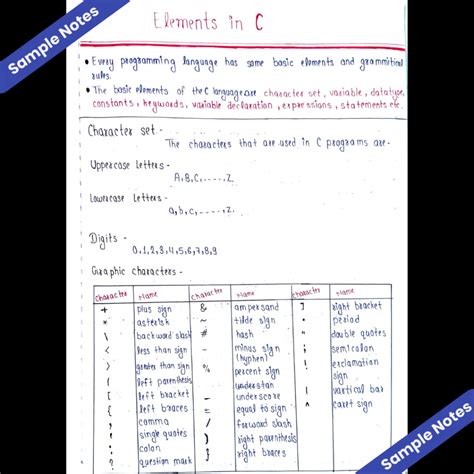 Sample Notes
Elements in C
• Every programming language has some basic elements and grammitical
rules.
• The basic elements of the C language are character set, variable, datatype,
constants, keywords, variable declaration, expressions, statements etc.
Character set -
The characters that are used in C programs are -
Uppercase Letters -
A,B,C,-----,Z
Lowercase Letters -
a,b,c,-----,z
Digits -
0,1,2,3,4,5,6,7,8,9
Graphic characters -
Character Name Character Name
+ plus sign & ampersand ] right bracket
* asterisk ~ tilde sign • period
\ backward slash # hash " double quotes
< less than sign - minus sign ; semicolon
(hyphen)
> greater than sign % percent sign ! exclamation
sign
( left parenthesis
[ left bracket - underscore | vertical bar
{ left braces = equal to sign ^ caret sign
, comma / forward slash
' single quotes ) right parenthesis
: colon } right braces
? question mark
Sample Notes